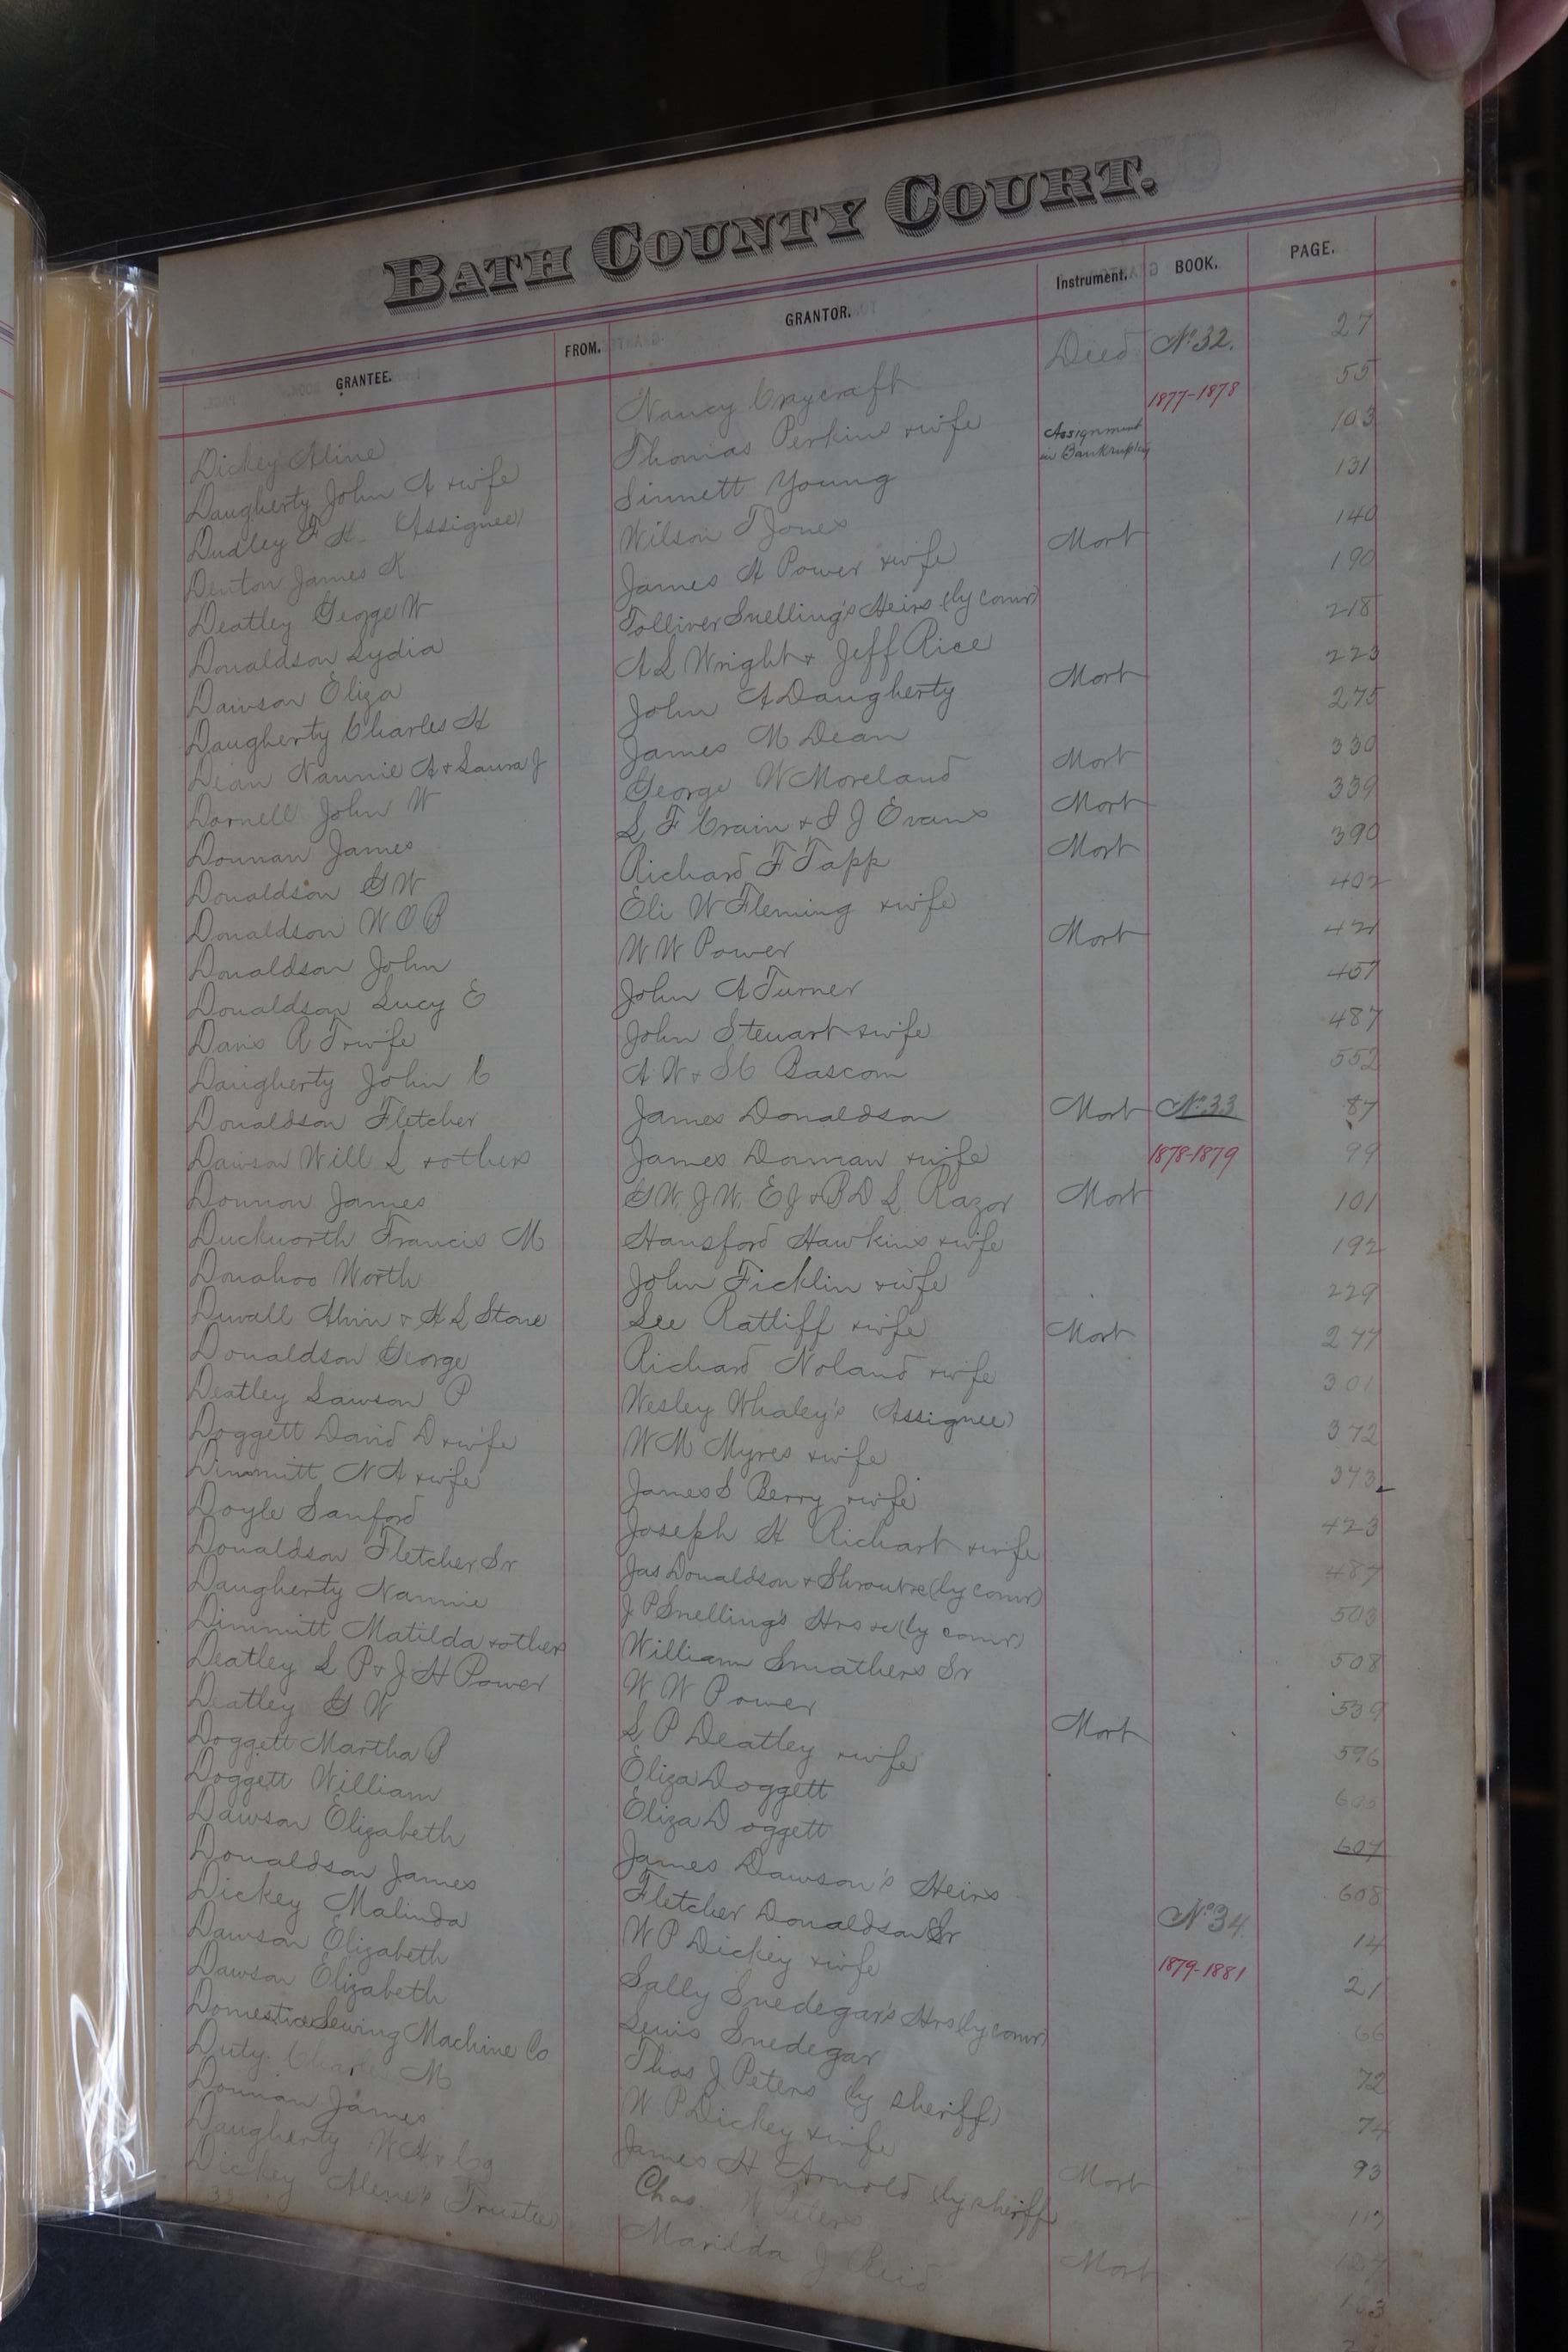 BATH COUNTY COURT.
GRANTEE. FROM. GRANTOR. Instrument. BOOK. PAGE.
Dickey Aline Nancy Craycraft Deed No 32. 27
Daugherty John A & wife Thomas Perkins & wife 1877-1878 55
Dudley F H (Assignee) Sinnett Young Assignment in Bankruptcy 103
Denton James K Wilson T Jones 131
Deatley George W James H Power & wife Mort 140
Donaldson Lydia Tolliver Snelling's Heirs (by comr) 190
Dawson Eliza A L Wright & Jeff Rice 218
Daugherty Charles H John A Daugherty Mort 223
Dean Nannie A & Laura J James M Dean 275
Darnell John W George W Moreland Mort 330
Donnan James S F Crain & I J Evans Mort 339
Donaldson G W Richard F Tapp Mort 390
Donaldson W O B Eli W Fleming & wife 402
Donaldson John W W Power Mort 421
Donaldson Lucy E John A Turner 457
Davis R T & wife John Steuart & wife 487
Daugherty John C A W & S C Bascom 552
Donaldson Fletcher James Donaldson Mort No 33 87
Dawson Will L & others James Donnan & wife 1878-1879 99
Donnon James G W, J W, E J & B D L Razor Mort 101
Duckworth Francis M Hansford Hawkins & wife 192
Donahoo Worth John Ficklin & wife 229
Duvall Alvin & H L Stone Lee Ratliff & wife Mort 277
Donaldson George Richard Noland & wife 301
Deatley Lawson P Wesley Whaley's (Assignee) 372
Doggett David D & wife W M Myres & wife 373
Dimmitt N A & wife James S Berry & wife 423
Doyle Sanford Joseph H Richart & wife 487
Donaldson Fletcher Sr Jas Donaldson & Shrout &c (by comr) 503
Daugherty Nannie J P Snelling's Hrs &c (by comr) 508
Dimmitt Matilda & others William Smathers Sr 539
Deatley L P & J H Power W W Power Mort 596
Deatley G W L P Deatley & wife 605
Doggett Martha P Eliza Doggett 607
Doggett William Eliza Doggett 608
Dawson Elizabeth James Dawson's Heirs No 34. 14
Donaldson James Fletcher Donaldson Sr 1879-1881 21
Dickey Malinda W P Dickey & wife 66
Dawson Elizabeth Sally Snedegar's Hrs (by comr) 72
Dawson Elizabeth Lewis Snedegar 74
Domestic Sewing Machine Co Thos J Peters (by sheriff) 93
Duty Charles M W P Dickey & wife Mort 117
Donnan James James H Arnold (by sheriff) 127
Daugherty W H & Co Chas. Peters Mort
Dickey Alene's Trustee Marilda J Reid